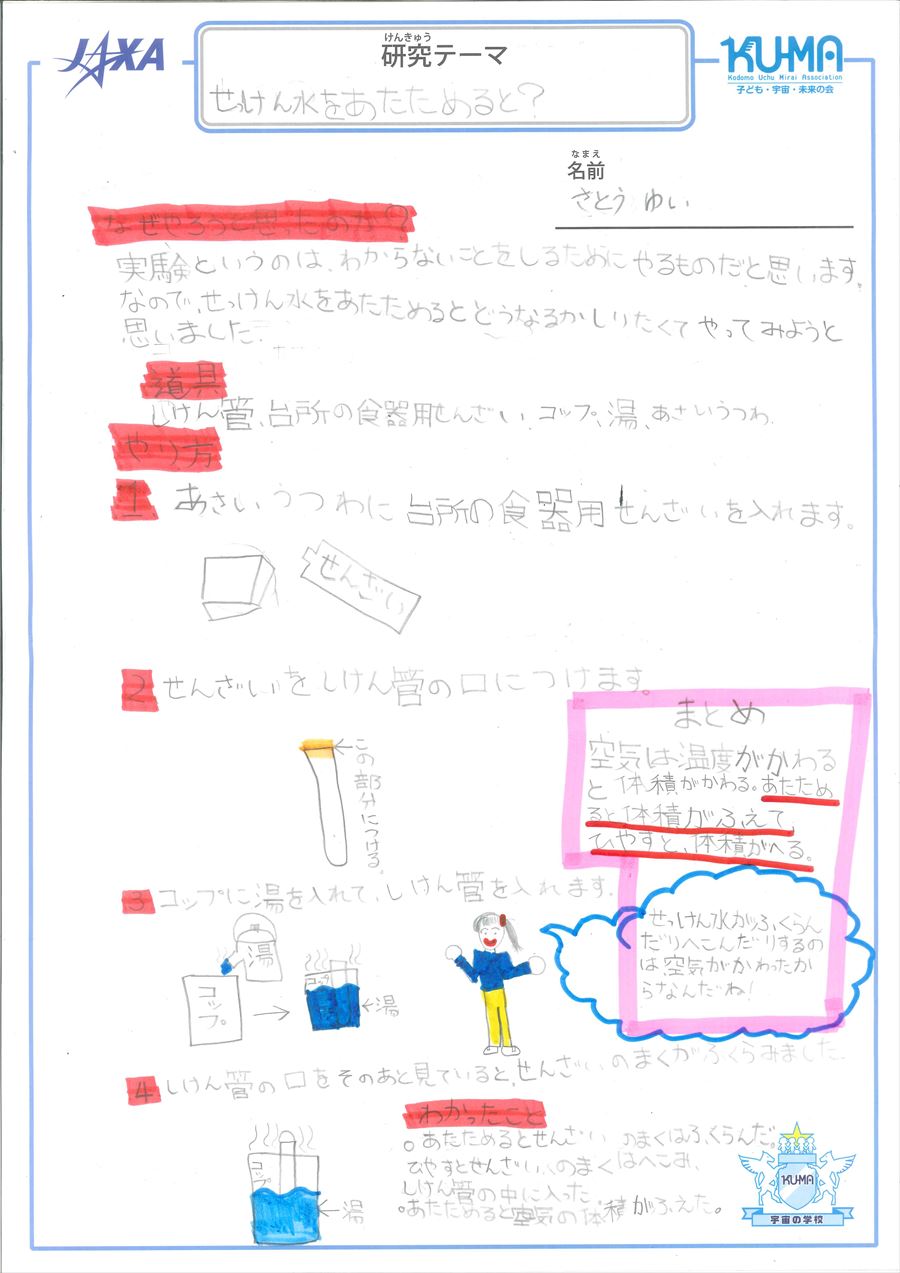 JAXA
けんきゅう
研究テーマ
せっけん水をあたためると?
KU-MA
Kodomo Uchu Mirai Association
子ども・宇宙・未来の会
なまえ
名前
さとう ゆい
なぜやろうと思ったのか?
実験というのは、わからないことをしるためにやるものだと思います。
なので、せっけん水をあたためるとどうなるかしりたくてやってみようと
思いました
道具
しけん管、台所の食器用せんざい、コップ、湯、あさいうつわ
やり方
1 あさいうつわに台所の食器用せんざいを入れます。
せんざい
2 せんざいをしけん管の口につけます。
←この部分につける。
3 コップに湯を入れて、しけん管を入れます。
湯
コップ
→
コップ
←湯
まとめ
空気は温度がかわる
と体積がかわる。あたため
ると、体積がふえて、
ひやすと、体積がへる。
せっけん水がふくらん
だりへこんだりするの
は、空気がかわったか
らなんだね!
4 しけん管の口をそのあと見ていると、せんざいのまくがふくらみました。
コップ
←湯
わかったこと
。あたためるとせんざいのまくはふくらんだ。
ひやすとせんざいのまくはへこみ、
しけん管の中に入った。
。あたためると空気の体積がふえた。
KU-MA
宇宙の学校